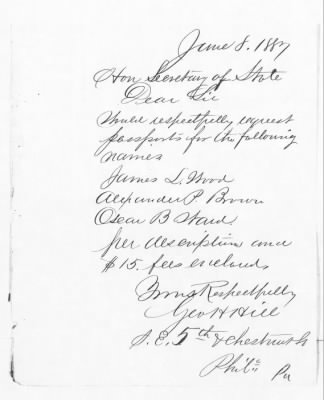 June 8. 1887
Hon Secretary of State
Dear Sir
Would respectfully request
passports for the following
names
James L. Wood
Alexander P Brown
Oscar B Ward
per description and
$15. fees enclosed
Yours Respectfully
Geo H Hill
S. E. 5th & Chestnut St
Phila Pa